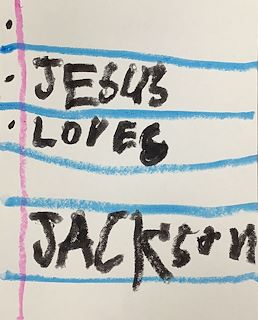 JESUS
LOVES
JACKson